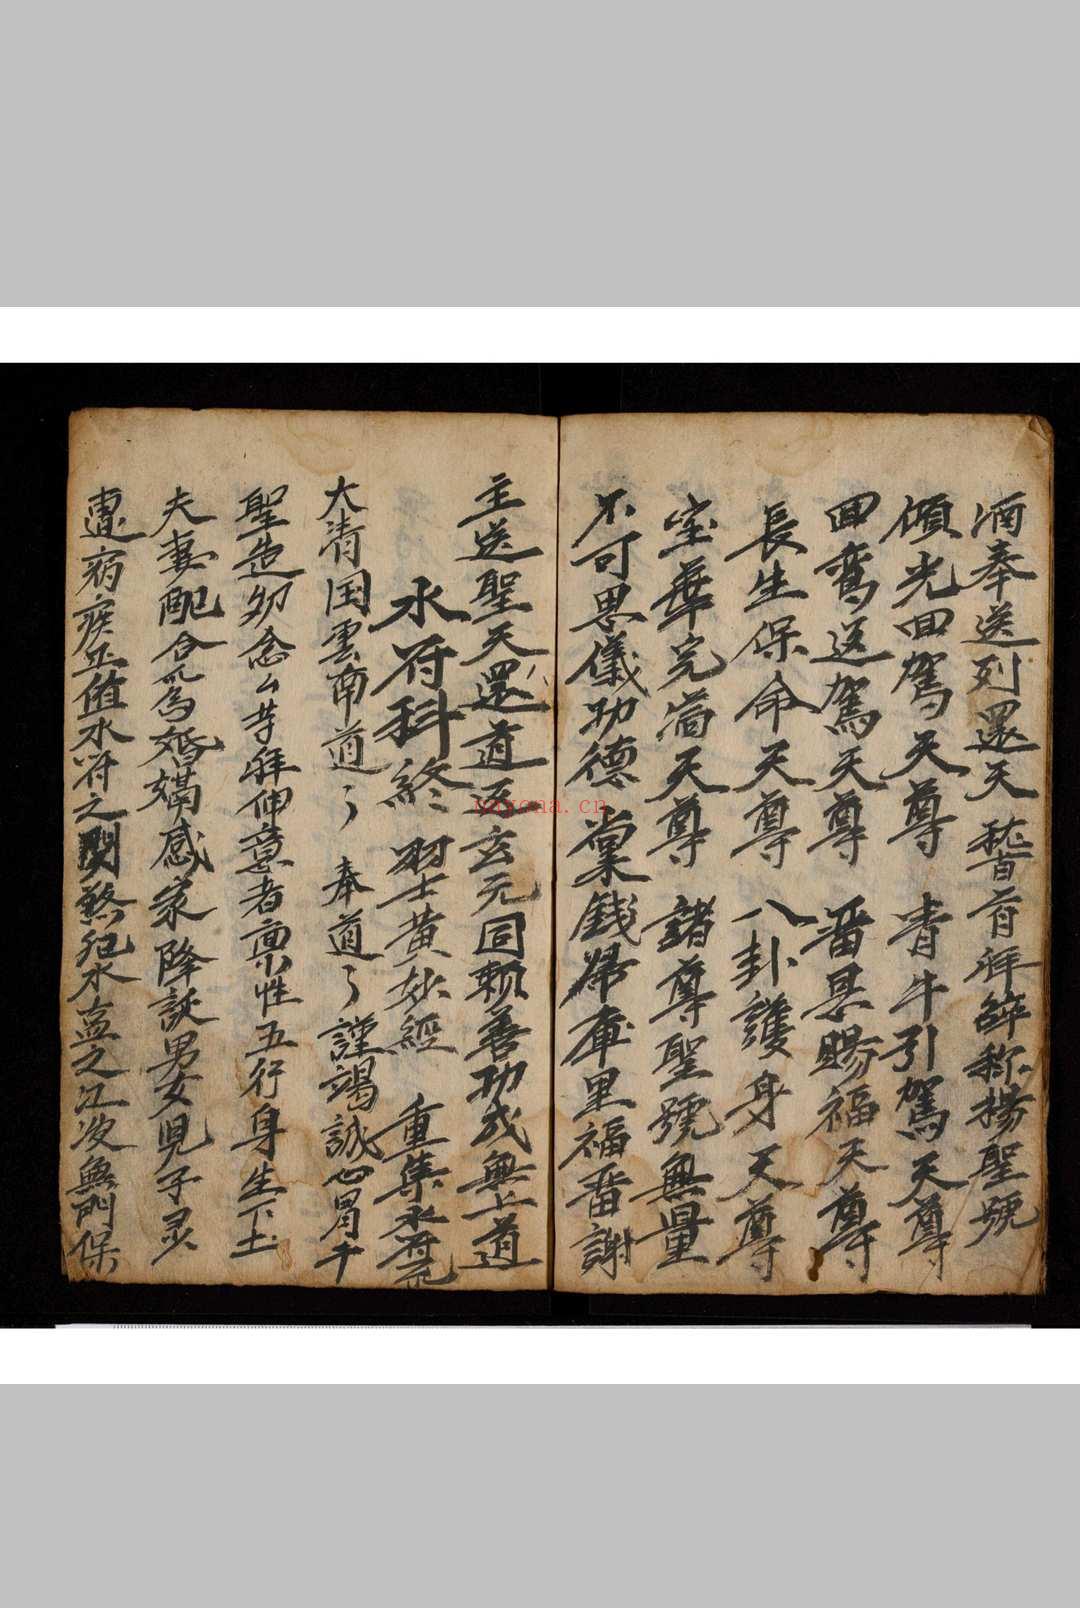 酒奉送列還天 稽首拜辞称揚聖號
傾光回駕天尊 青牛引駕天尊
回鸾送駕天尊 晋恳賜福天尊
長生保命天尊 八卦護身天尊
宝華完滿天尊 諸尊聖號無量
不可思儀功德 稟錢帰庫里福晋謝
主送聖天還道 至玄元同賴善功成無上道
水府科終 財士黃 經 重集水府
大清国雲南道 奉道 謹竭誠心冒干
聖造 念 拜伸意者稟性五行身生下土
夫妻配合 為婚媾感家降誕男女児子
遭病疾 值水府之関煞犯水盆之江波無門保
yayona.cn